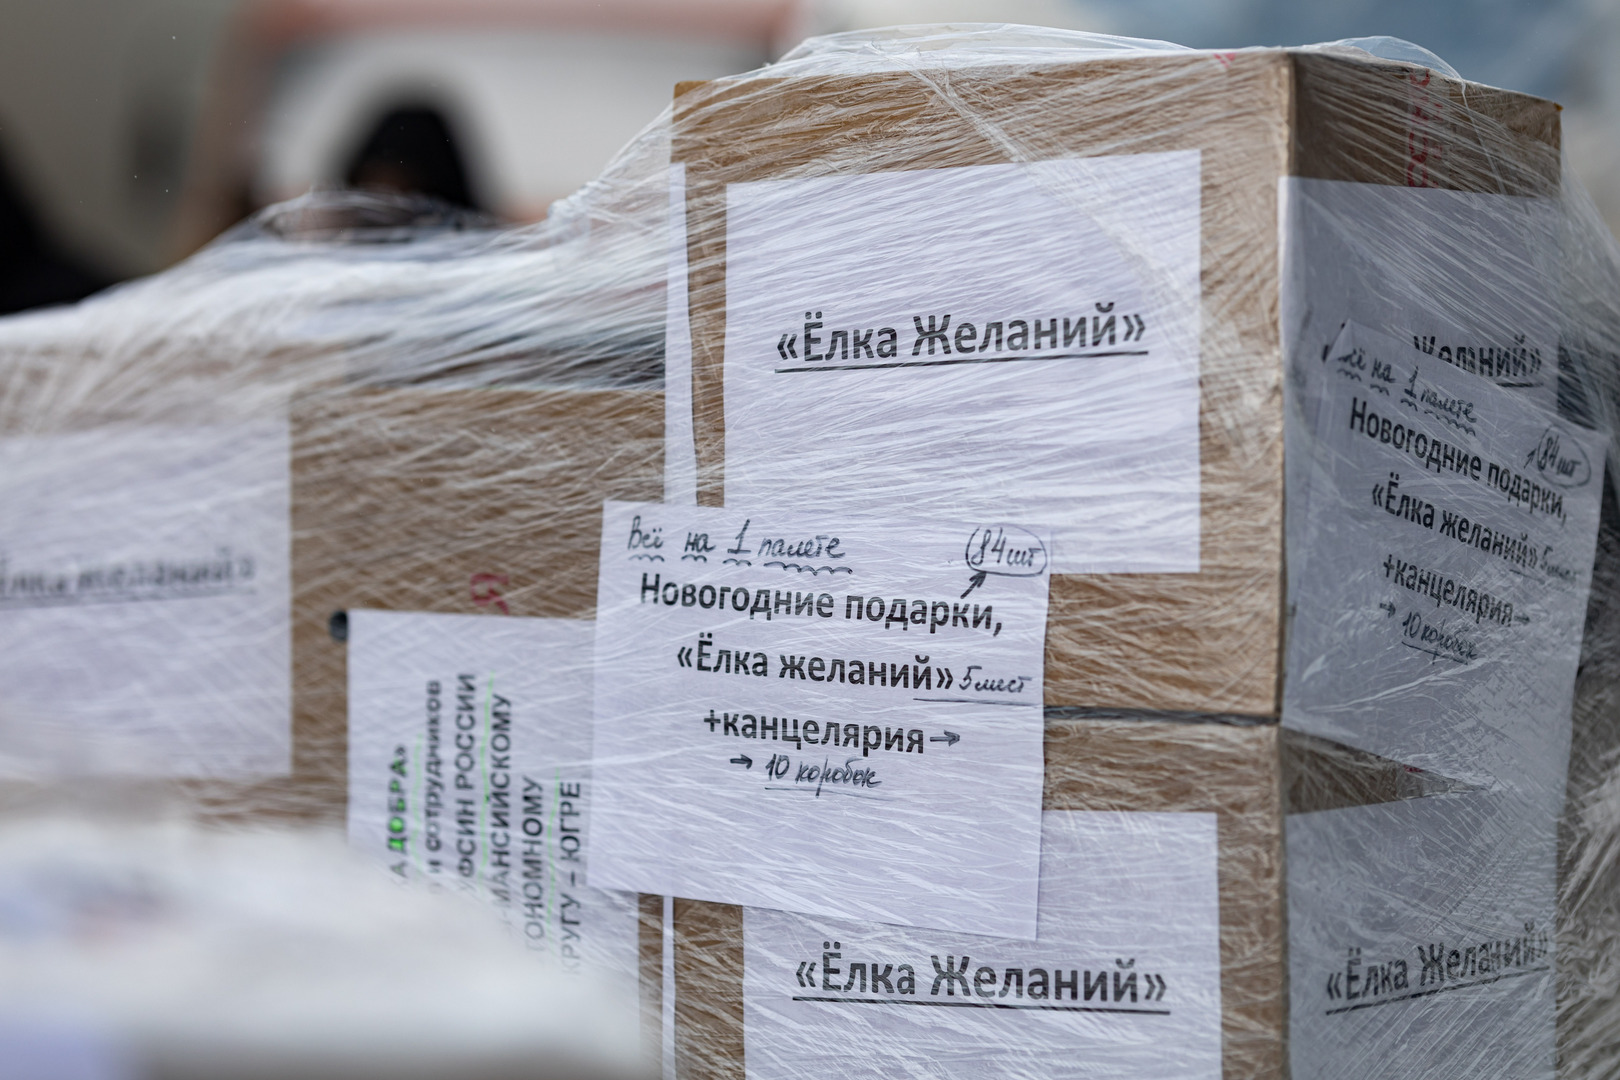 «Ёлка Желаний»
Всё на 1 палете
84 шт
Новогодние подарки,
«Ёлка желаний» 5 мест
+канцелярия→
→ 10 коробок
«Ёлка Желаний»
«Ёлка желаний»
ДОБРА»
сотрудников
УФСИН РОССИИ
МАНСИЙСКОМУ
ОНОМНОМУ
КРУГУ – ЮГРЕ
Желаний»
всё на 1 палете
84 шт
Новогодние подарки,
«Ёлка желаний» 5 мест
+канцелярия→
→ 10 коробок
«Ёлка Желаний»